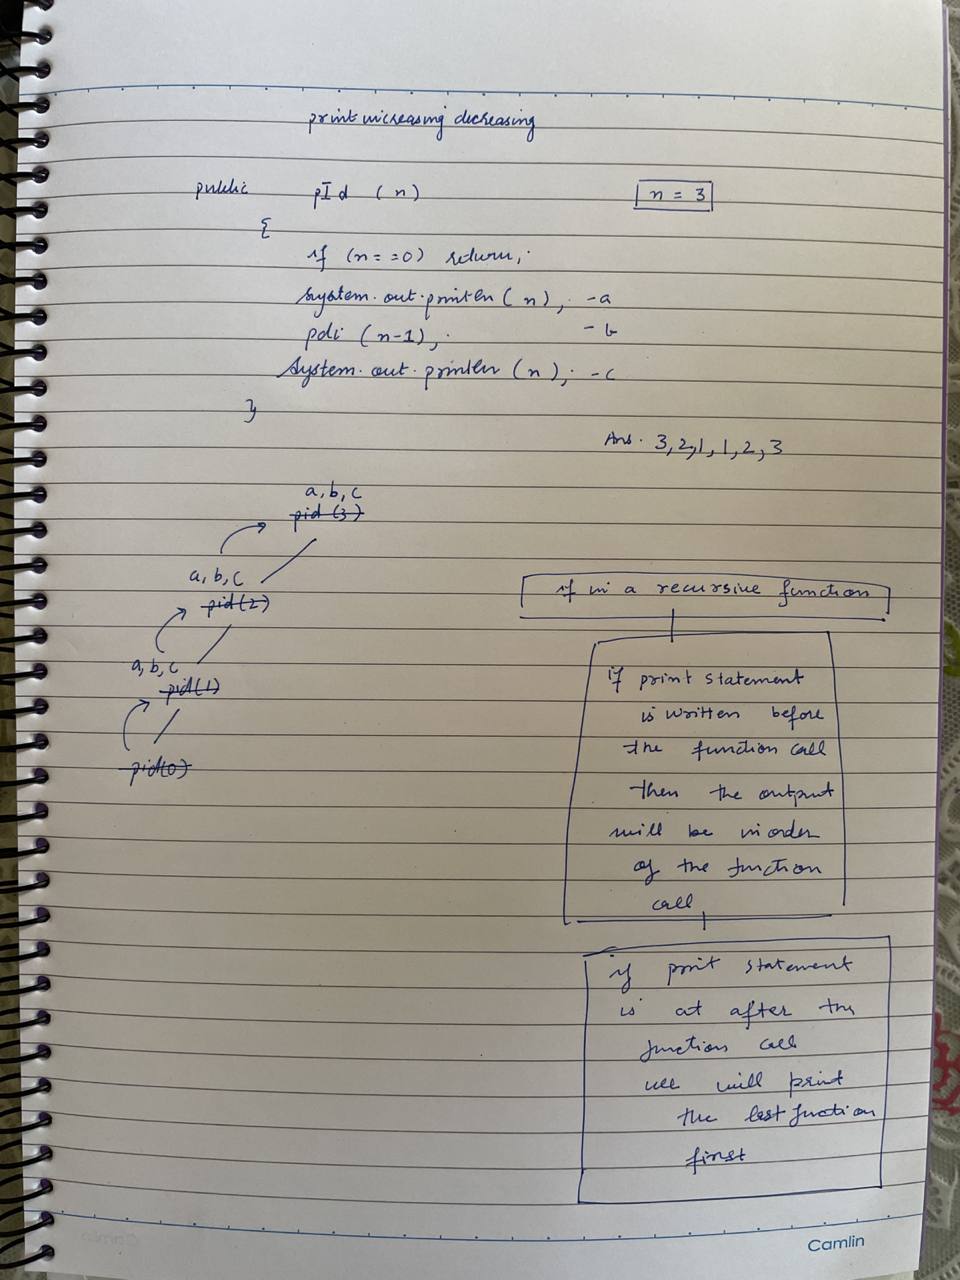 print increasing decreasing
public pId (n)
n = 3
{
if (n = =0) return;
System.out.println(n); -a
pdi (n-1); -b
System.out.println(n); -c
}
Ans. 3,2,1,1,2,3
a,b,c
pid(3)
a,b,c
pid(2)
a,b,c
pid(1)
pid(0)
if in a recursive function
if print statement
is written before
the function call
then the output
will be in order
of the function
call
if print statement
is at after the
function call
we will print
the last function
first
Camlin